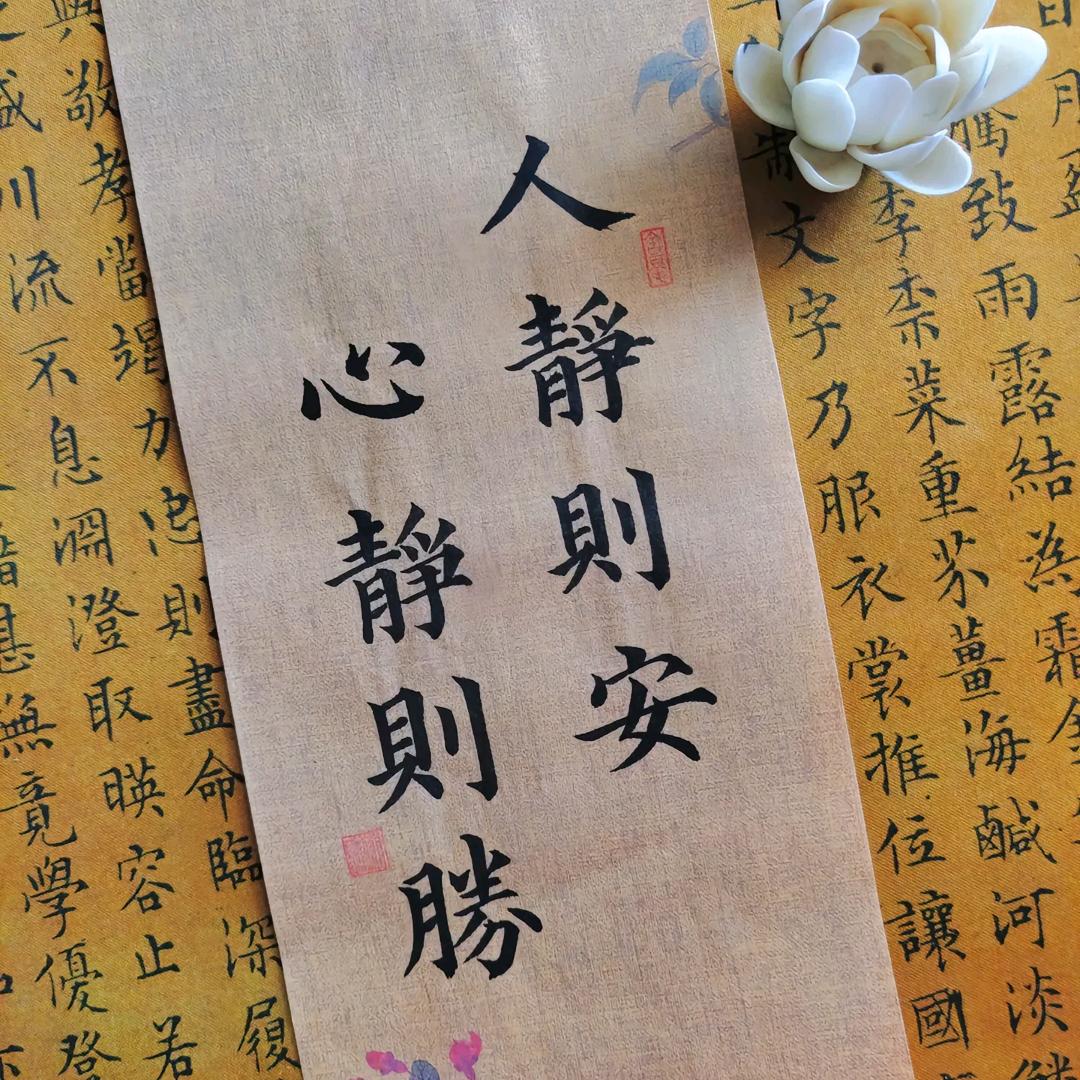 騰致雨露結為霜金
李柰菜重芥薑海鹹河淡
制文字乃服衣裳推位讓國
人靜則安
心靜則勝
與敬孝當竭力忠則盡命臨深履
盛川流不息淵澄取暎容止若
甚無竟學優登